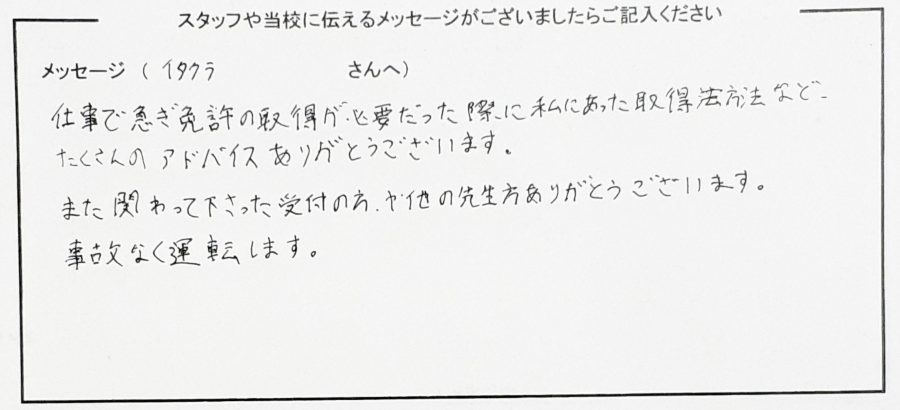 スタッフや当校に伝えるメッセージがございましたらご記入ください
メッセージ（イタクラ さんへ）
仕事で急ぎ免許の取得が必要だった際に私にあった取得法方法など、
たくさんのアドバイスありがとうございます。
また関わって下さった受付の方、や他の先生方ありがとうございます。
事故なく運転します。